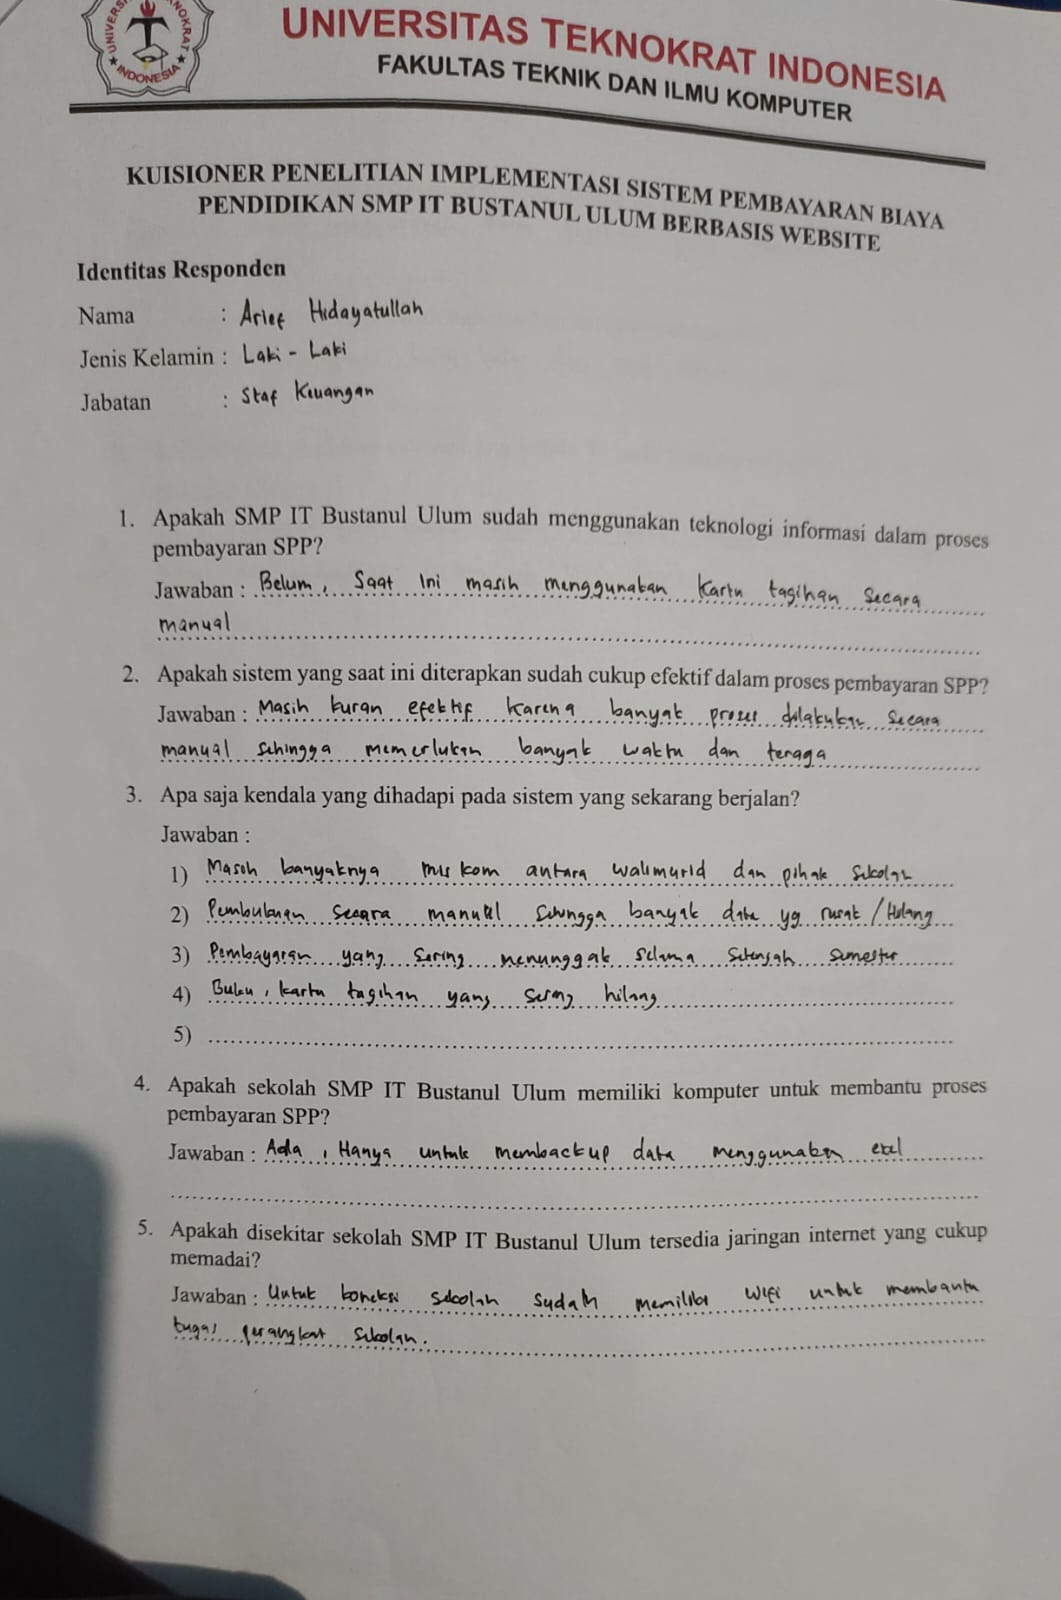 UNIVERSITAS TEKNOKRAT INDONESIA
FAKULTAS TEKNIK DAN ILMU KOMPUTER
INDONESIA
KUISIONER PENELITIAN IMPLEMENTASI SISTEM PEMBAYARAN BIAYA
PENDIDIKAN SMP IT BUSTANUL ULUM BERBASIS WEBSITE
Identitas Responden
Nama : Arief Hidayatullah
Jenis Kelamin : Laki - Laki
Jabatan : Staf Keuangan
1. Apakah SMP IT Bustanul Ulum sudah menggunakan teknologi informasi dalam proses
pembayaran SPP?
Jawaban : Belum, Saat Ini masih menggunakan Kartu tagihan Secara
manual
2. Apakah sistem yang saat ini diterapkan sudah cukup efektif dalam proses pembayaran SPP?
Jawaban : Masih kuran efektif Karena banyak proses dilakukan Secara
manual sehingga memerlukan banyak waktu dan tenaga
3. Apa saja kendala yang dihadapi pada sistem yang sekarang berjalan?
Jawaban :
1) Masih banyaknya mis kom antara walimurid dan pihak sekolah
2) Pembukuan secara manual sehingga banyak data yg rusak / Hilang
3) Pembayaran yang sering menunggak selama setengah semester
4) Buku, kartu tagihan yang sering hilang
5)
4. Apakah sekolah SMP IT Bustanul Ulum memiliki komputer untuk membantu proses
pembayaran SPP?
Jawaban : Ada, Hanya untuk membackup data menggunakan
5. Apakah disekitar sekolah SMP IT Bustanul Ulum tersedia jaringan internet yang cukup
memadai?
Jawaban : Untuk koneksi sekolah sudah memiliki wifi untuk membantu
tugas perangkat sekolah.